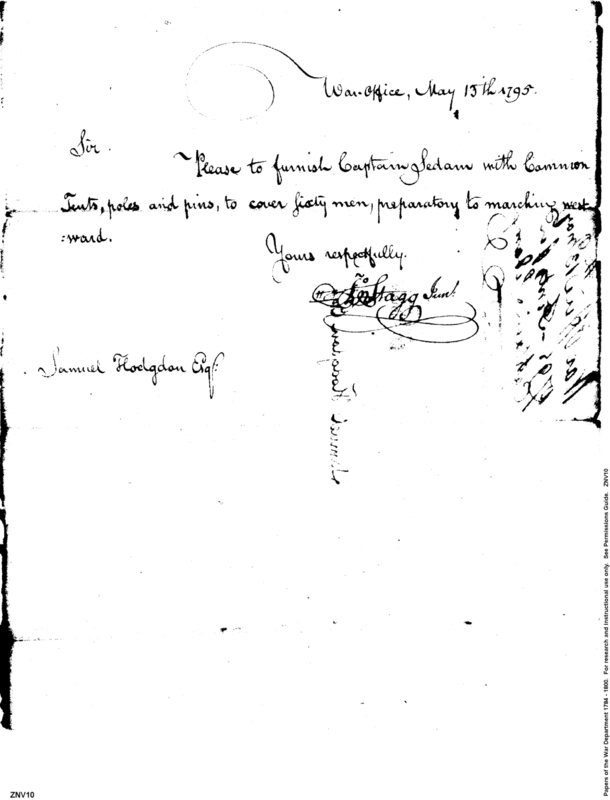 War-Office, May 13th 1795.
Sir.
Please to furnish Captain Sedam with Common
Tents, poles and pins, to cover sixty men, preparatory to marching west
:ward.
Yours respectfully.
Jno Stagg Junr.
Samuel Hodgdon Esqr.
Papers of the War Department 1784 - 1800. For research and instructional use only. See Permissions Guide. ZNV10
ZNV10